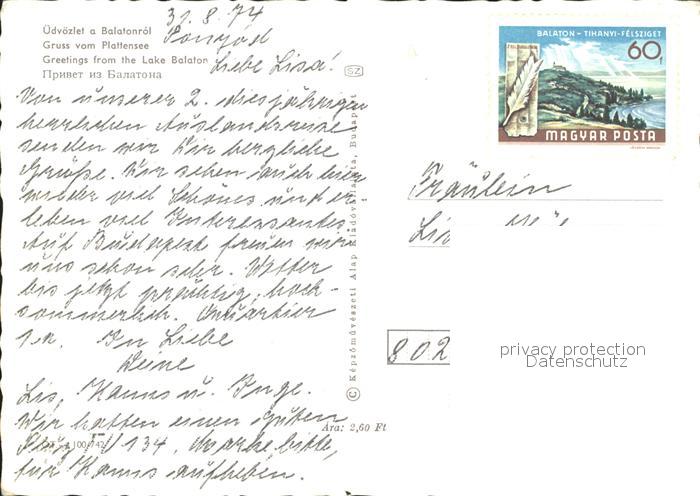 31.8.74
Üdvözlet a Balatonról
Siófok
Gruss vom Plattensee
Greetings from the Lake Balaton
Привет из Балатона
Liebe Lisa!
SZ
Von unserer 2. diesjährigen
herrlichen Auslandsreise
senden wir Dir herzliche
Grüße. Wir sehen auch hier
wieder viel Schönes und er
leben viel Interessantes.
Auf Budapest freuen wir
uns schon sehr. Wetter
bis jetzt prächtig, hoch-
sommerlich. Quartier
1a. In Liebe
Deine
Lis, Hanns u. Inge.
Wir hatten einen guten
Flug, 134. Marke bitte,
für Hanns aufheben.
Ára: 2,60 Ft
© Képzőművészeti Alap Kiadóvállalata, Budapest
BALATON - TIHANYI-FÉLSZIGET
60f
MAGYAR POSTA
Fräulein
802
privacy protection
Datenschutz